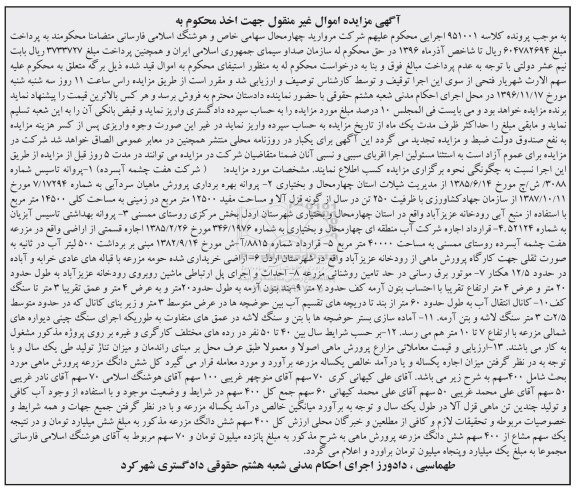 آگهی مزایده اموال غیر منقول جهت اخذ محکوم به
به موجب پرونده کلاسه ۹۵۱۰۰۱ اجرایی محکوم علیهم شرکت مروارید چهارمحال سهامی خاص و هوشنگ اسلامی فارسانی متضامنا محکومند به پرداخت
مبلغ ۶۰۴۷۸۲۶۹۴ ریال تا شاخص آذرماه ۱۳۹۶ در حق محکوم له سازمان صداو سیمای جمهوری اسلامی ایران و همچنین پرداخت مبلغ ۳۷۳۳۷۲۷ ریال بابت
نیم عشر دولتی با توجه به عدم پرداخت مبالغ فوق و بنا به درخواست محکوم له به منظور استیفای محکوم به اموال قید شده ذیل برگه متعلق به محکوم علیه
سهم الارث شهریار فتحی از سوی این اجرا توقیف و توسط کارشناس توصیف و ارزیابی شد و مقرر است از طریق مزایده راس ساعت ۱۱ روز سه شنبه شنبه
مورخ ۱۳۹۶/۱۱/۱۷ در محل اجرای احکام مدنی شعبه هشتم حقوقی با حضور نماینده دادستان محترم به فروش برسد و هر کس بالاترین قیمت را پیشنهاد نماید
برنده مزایده خواهد بود و می بایست فی المجلس ۱۰ درصد مبلغ مورد مزایده را به حساب سپرده دادگستری واریز نماید و قبض بانکی آن را به این شعبه تسلیم
نماید و مابقی مبلغ را حداکثر ظرف مدت یک ماه از تاریخ مزایده به حساب سپرده واریز نماید در غیر این صورت وجوه واریزی پس از کسر هزینه مزایده
به نفع صندوق دولت ضبط و مزایده تجدید می گردد این آگهی برای یکبار در روزنامه محلی منتشر همچنین در معابر عمومی الصاق خواهد شد شرکت در
مزایده برای عموم آزاد است به استثنا مسئولین اجرا اقربای سببی و نسبی آنان ضمنا متقاضیان شرکت در مزایده می توانند در مدت ۵ روز قبل از مزایده از طریق
این اجرا نسبت به چگونگی نحوه برگزاری مزایده کسب اطلاع نمایند. مشخصات مورد مزایده: ( شرکت هفت چشمه آبسرده) ۱-پروانه تاسیس شماره
۳۰۸۸/ش/ج مورخ ۱۳۸۵/۶/۱۴ از مدیریت شیلات استان چهارمحال و بختیاری ۲- پروانه بهره برداری پرورش ماهیان سردآبی به شماره ۷/۱۷۲۹۴ مورخ
۱۳۸۷/۱۰/۱۱ از سازمان جهادکشاورزی با ظرفیت ۲۵۰ تن در سال از گونه قزل آلا و مساحت مفید ۱۲۵۰۰ متر مربع در زمینی به مساحت کلی ۱۴۵۰۰ متر مربع
با استفاده از منبع آبی رودخانه عزیزآباد واقع در استان چهارمحال و بختیاری شهرستان اردل بخش مرکزی روستای ممسنی ۳- پروانه بهداشتی تاسیس آبزیان
به شماره ۵۲۱۲۴-۴. قرارداد اجاره شرکت آب منطقه ای چهارمحال و بختیاری به شماره ۳۴۶/۱۹۷۶ مورخ ۱۳۸۵/۲/۲۶ اجاره قسمتی از اراضی واقع در مزرعه
هفت چشمه آبسرده روستای ممسنی به مساحت ۴۰۰۰۰ متر مربع ۵- قرارداد شماره ۸۸۱۵/آ-ش مورخ ۱۳۸۲/۹/۱۴ مبنی بر برداشت ۵۰۰ لیتر آب در ثانیه به
صورت ثقلی جهت کارگاه پرورش ماهی از رودخانه عزیزآباد واقع در شهرستان اردل ۶- اراضی خریداری شده حومه مزرعه با قباله های عادی خرابه و آباده
در حدود ۱۲/۵ هکتار ۷- موتور برق رسانی در حد تامین روشنای مزرعه ۸- احداث و اجرای پل ارتباطی ماشین روبروی رودخانه عزیزآباد به طول حدود
۲۰ متر و عرض ۴ متر ارتفاع تقریبا با احتساب بتون آرمه کف حدود ۷ متر ۹- بند بتون آرمه به طول حدود۲۰متر و به عرض ۴ متر و عمق تقریبا ۳ متر تا سنگ
کف۱۰- کانال انتقال آب به طول حدود ۶۰ متر از بند تا دریچه های تقسیم آب بین حوضچه ها در عرض متوسط ۳ متر و زیر بنای کانال که در حدود متوسط
۲/۵ت ۳ متر سنگ لاشه و بتن آرمه. ۱۱- آماده سازی بستر حوضچه ها با بتن و سنگ لاشه در عمق های متفاوت به طوریکه اجرای سنگ چینی دیواره های
شمالی مزرعه با ارتفاع ۷ تا ۱۰ متر هم می رسد. ۱۲-بر حسب شرایط سال بین ۴۰ تا ۵۰ نفر در رده های مختلف کارگری و غیره بر روی پروژه مذکور مشغول
به کار می باشند. ۱۳-ارزیابی و قیمت معاملاتی مزارع پرورش ماهی اصولا و معمولا طبق عرف محل بر مبنای راندمان و میزان تناژ تولید طی یک سال و یا
توجه به در نظر گرفتن میزان اجاره یکساله و یا درآمد خالص یکساله مزرعه برآورد و مورد معامله قرار می گیرد کل شش دانگ مزرعه پرورش ماهی مورد
بحث شامل ۴۰۰سهم به شرح زیر می باشد. آقای علی کیهانی کری ۷۰ سهم آقای منوچهر غریبی ۱۰۰ سهم آقای هوشنگ اسلامی ۷۰ سهم آقای نادر غریبی
۵۰ سهم آقای علی محمد غریبی ۵۰ سهم آقای علی محمد کیهانی ۶۰ سهم جمع کل ۴۰۰ سهم در شرایط و وضعیت موجود و با استفاده از وجود آب کافی
و تولید چندین تن ماهی قزل آلا در طول یک سال و توجه به برآورد میانگین خالص درآمد یکساله مزرعه و با در نظر گرفتن جمیع جهات و همه شرایط و
خصوصیات مربوطه و تحقیقات لازم و کافی از مطلعین و خبرگان محلی ارزش کل ۴۰۰ سهم شش دانگ مزرعه مذکور به مبلغ شش میلیارد تومان و در نتیجه
یک سهم مشاع از ۴۰۰ سهم شش دانگ مزرعه پرورش ماهی به شرح مذکور به مبلغ پانزده میلیون تومان و ۷۰ سهم مربوط به آقای هوشنگ اسلامی فارسانی
مجموعا به مبلغ یک میلیارد وپنجاه میلیون تومان براورد و اعلام می گردد.
طهماسبی ، دادورز اجرای احکام مدنی شعبه هشتم حقوقی دادگستری شهرکرد